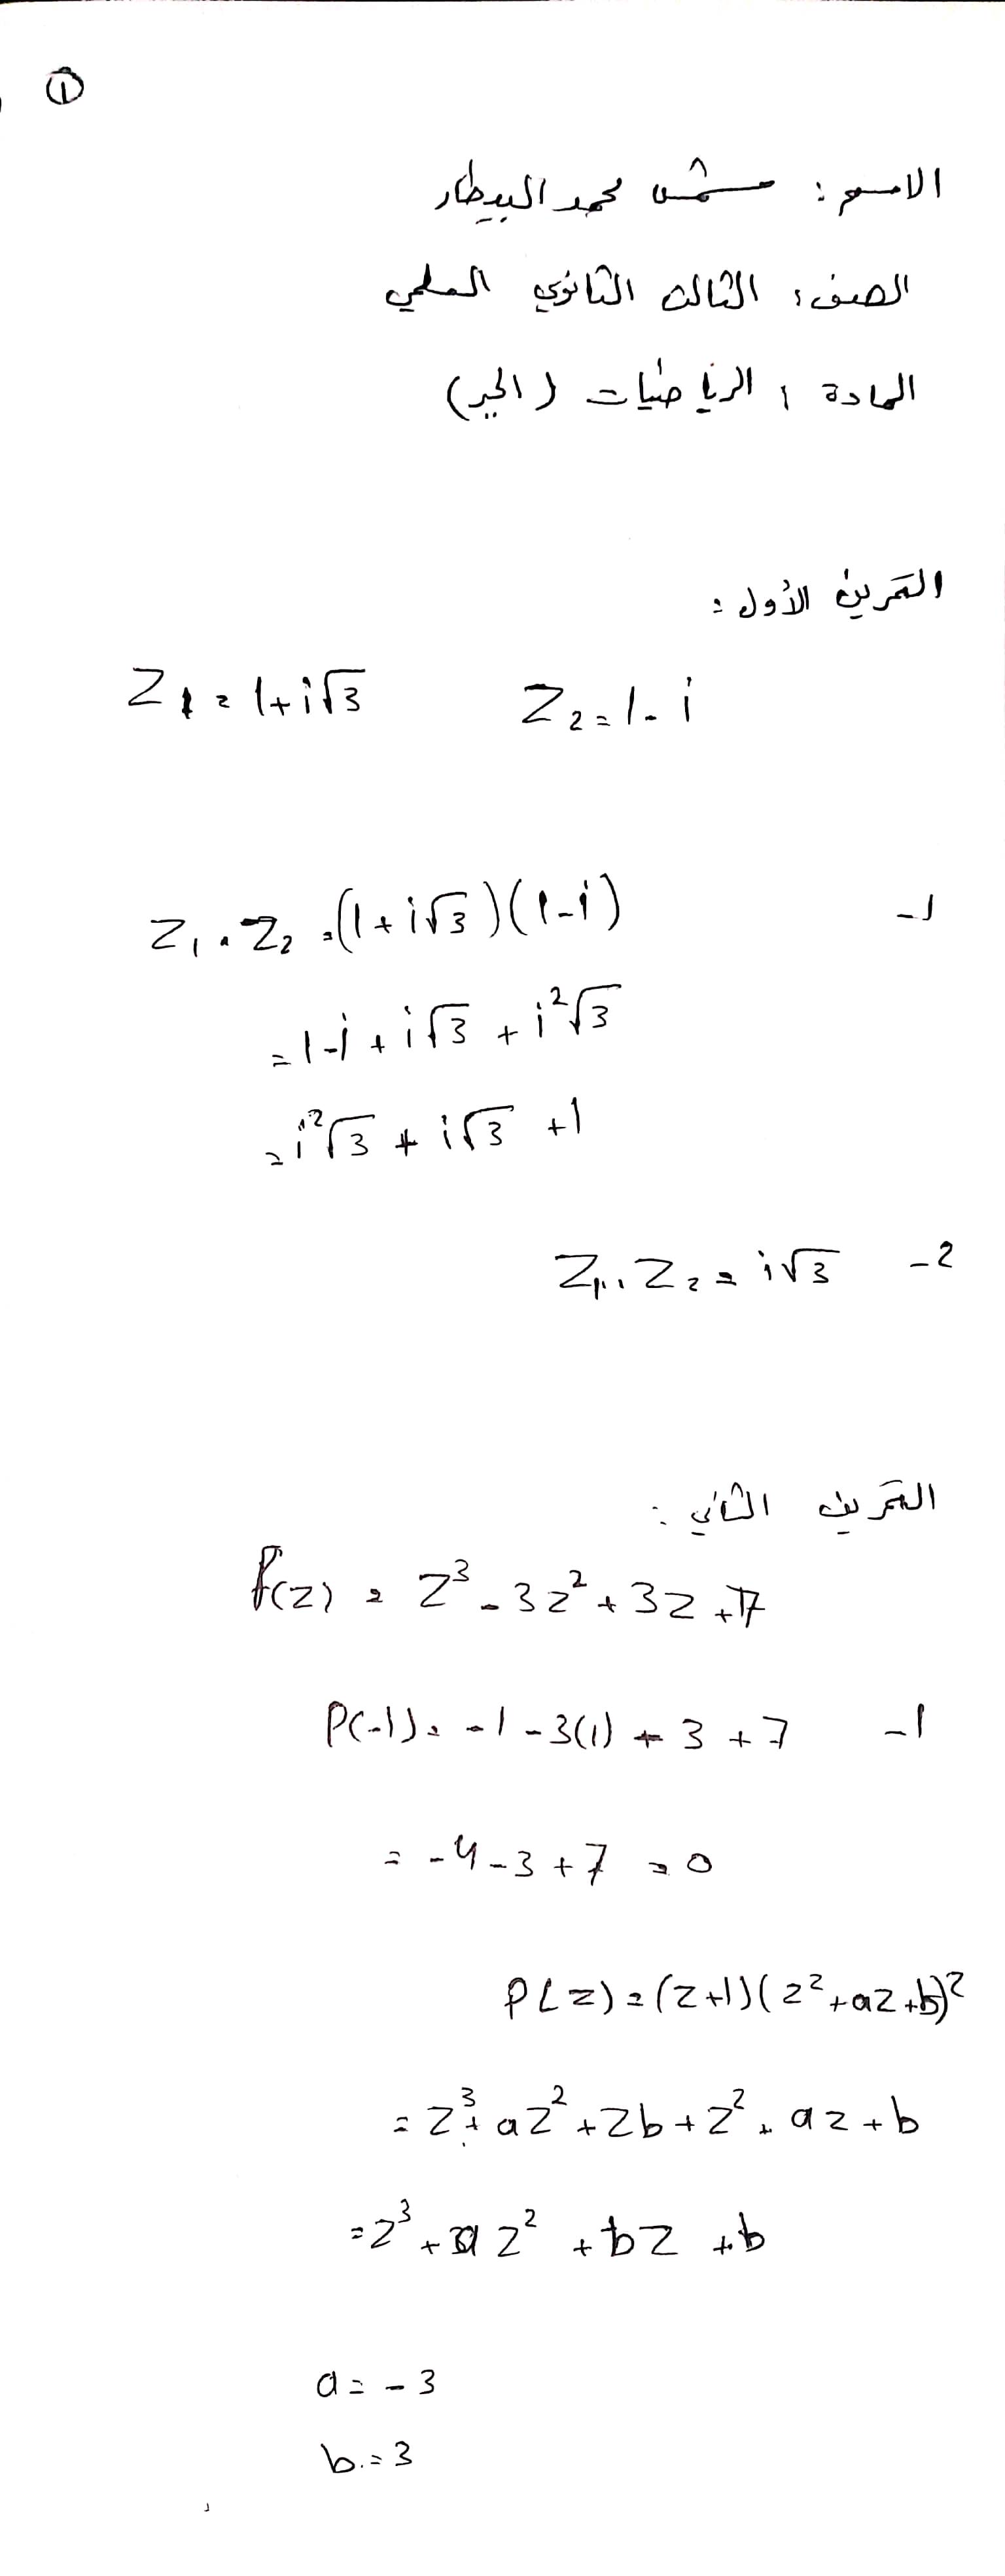 ①
الاسم : شمس محمد البيطار
الصف : الثالث الثانوي العلمي
المادة : الرياضيات (الجبر)
التمرين الأول :
Z₁ = 1+i√3 Z₂ = 1-i
1- Z₁ . Z₂ = (1+i√3)(1-i)
= 1-i+i√3 + i²√3
= i²√3 + i√3 +1
2- Z₁ . Z₂ = i√3
التمرين الثاني :
P(z) = z³ - 3z² + 3z + 7
1- P(-1) = -1 - 3(1) + 3 + 7
= -4 - 3 + 7 = 0
P(z) = (z+1)(z²+az+b) 2
= z³ + az² + zb + z² + az + b
= z³ + a z² + bz + b
a = -3
b = 3